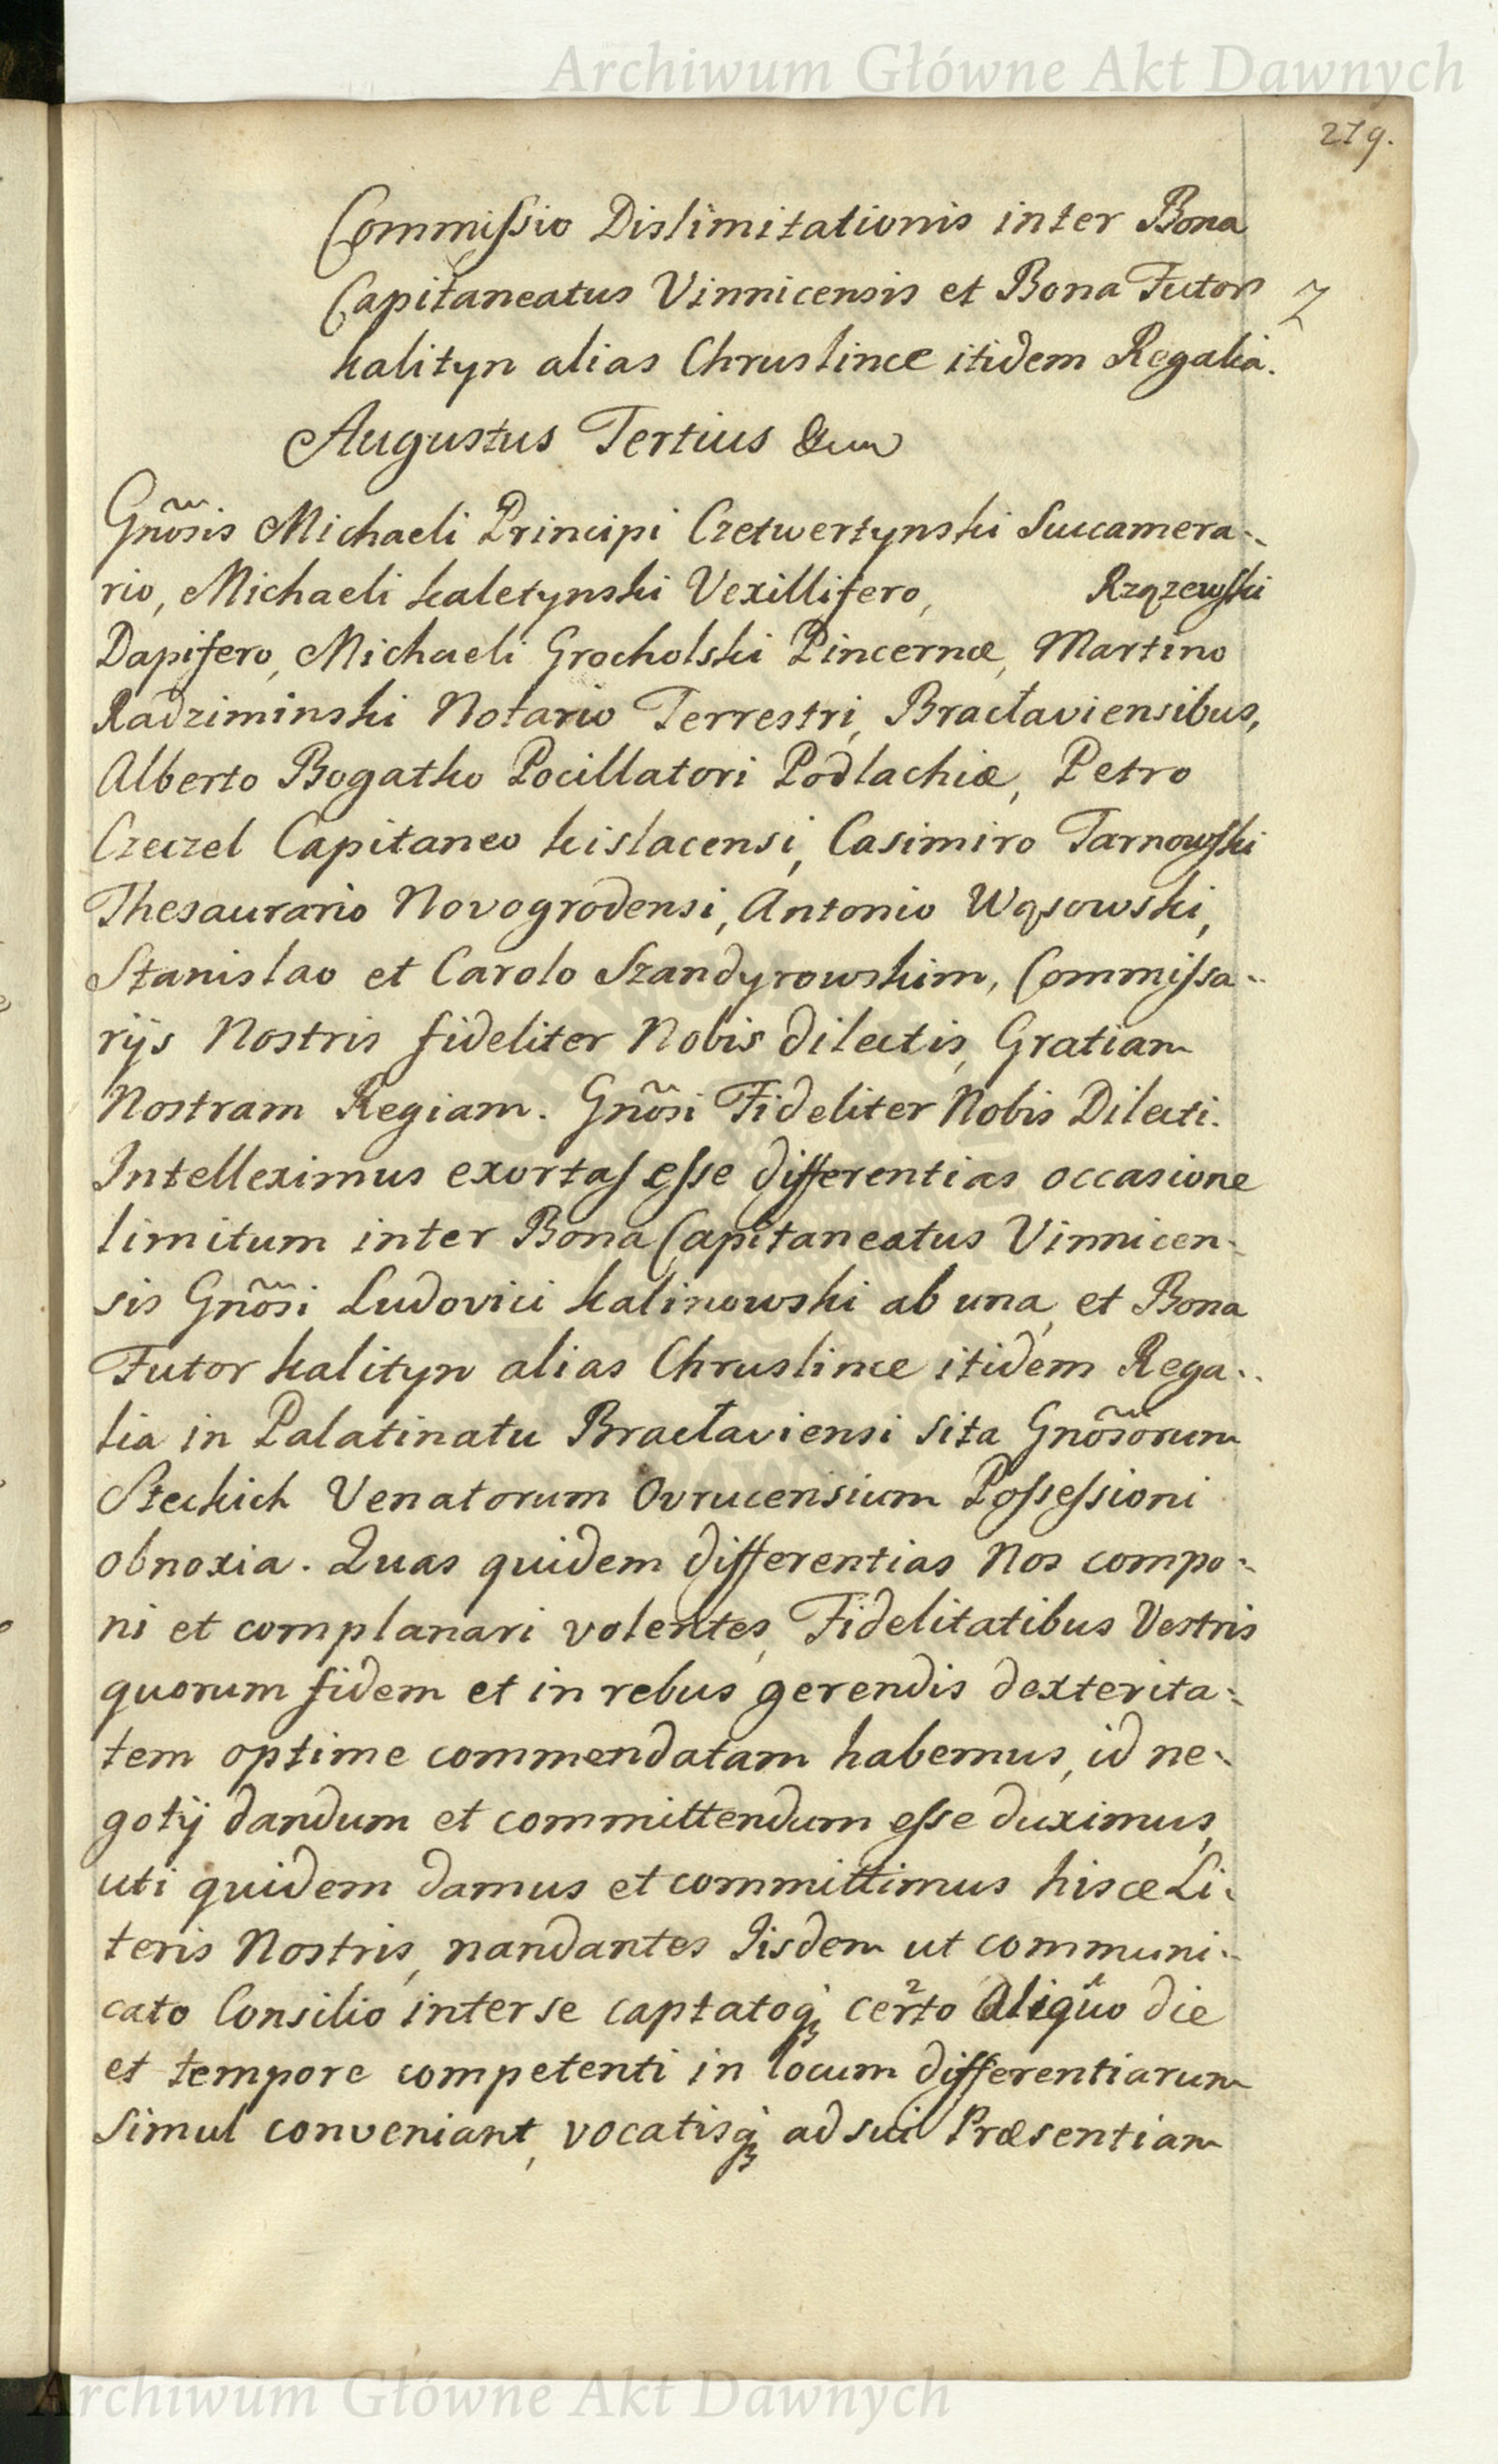 Archiwum Główne Akt Dawnych
219.
Commissio Dislimitationis inter Bona
Capitaneatus Vinnicensis et Bona Futor
Kalityn alias Chruslince itidem Regalia.
Augustus Tertius
Gnõsis Michaeli Principi Czetwertynski Succamera-
rio, Michaeli Kaletynski Vexillifero, Rzązewski
Dapifero, Michaeli Grocholski Pincernæ, Martino
Radziminski Notario Terrestri, Bracłaviensibus,
Alberto Bogatko Pocillatori Podlachiæ, Petro
Czeczel Capitaneo Kislacensi, Casimiro Tarnowski
Thesaurario Novogrodensi, Antonio Wąsowski,
Stanislao et Carolo Szandyrowskim, Commissa-
rijs Nostris fideliter Nobis dilectis, Gratiam
Nostram Regiam. Gnõsi Fideliter Nobis Dilecti.
Intelleximus exortas esse differentias occasione
limitum inter Bona Capitaneatus Vinnicen-
sis Gnõsi Ludovici Kalinowski ab una, et Bona
Futor Kalityn alias Chruslince itidem Rega-
lia in Palatinatu Bracłaviensi sita Gnõsorum
Steckich Venatorum Ovrucensium Possessioni
obnoxia. Quas quidem differentias Nos compo-
ni et complanari volentes, Fidelitatibus Vestris
quorum fidem et in rebus gerendis dexterita-
tem optime commendatam habemus, id ne-
gotij dandum et committendum esse duximus,
uti quidem damus et committimus hisce Li-
teris Nostris, nandantes Iisdem ut communi-
cato Consilio inter se captatoq; certo aliquo die
et tempore competenti in locum differentiarum
simul conveniant, vocatisq; ad sui Præsentiam
Archiwum Główne Akt Dawnych